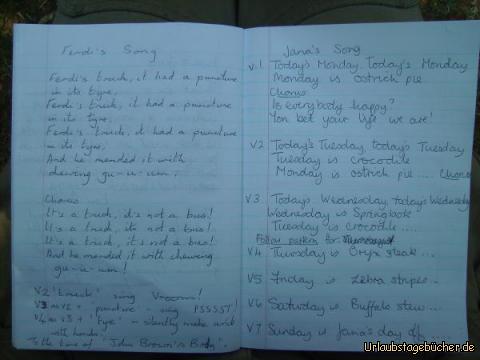 Ferdi's Song
Ferdi's truck, it had a puncture
in its tyre.
Ferdi's truck, it had a puncture
in its tyre.
Ferdi's truck, it had a puncture
in its tyre.
And he mended it with
chewing gu-u-um.
Chorus
It's a truck, it's not a bus!
It's a truck, it's not a bus!
It's a truck, it's not a bus!
And he mended it with chewing
gu-u-um!
V2 'truck' sing Vroom!
V3 as V2 + 'puncture' - sing PSSSST!
V4 as V3 + 'tyre' - silently make
with hands!
To the tune of 'John Brown's Body'.
Jana's Song
V.1 Today's Monday, Today's Monday
Monday is ostrich pie.
Chorus
Is everybody happy?
You bet your life we are!
V2 Today's Tuesday, today's Tuesday
Tuesday is crocodile
Monday is ostrich pie.... Chorus
V3 Today's Wednesday, today's Wednesday
Wednesday is Springbok
Tuesday is crocodile....
Follow pattern for
V4 Thursday is Oryx steak...
V5 Friday is Zebra stripes...
V6 Saturday is Buffalo stew....
V7 Sunday is Jana's day off.
Urlaubstagebücher.de